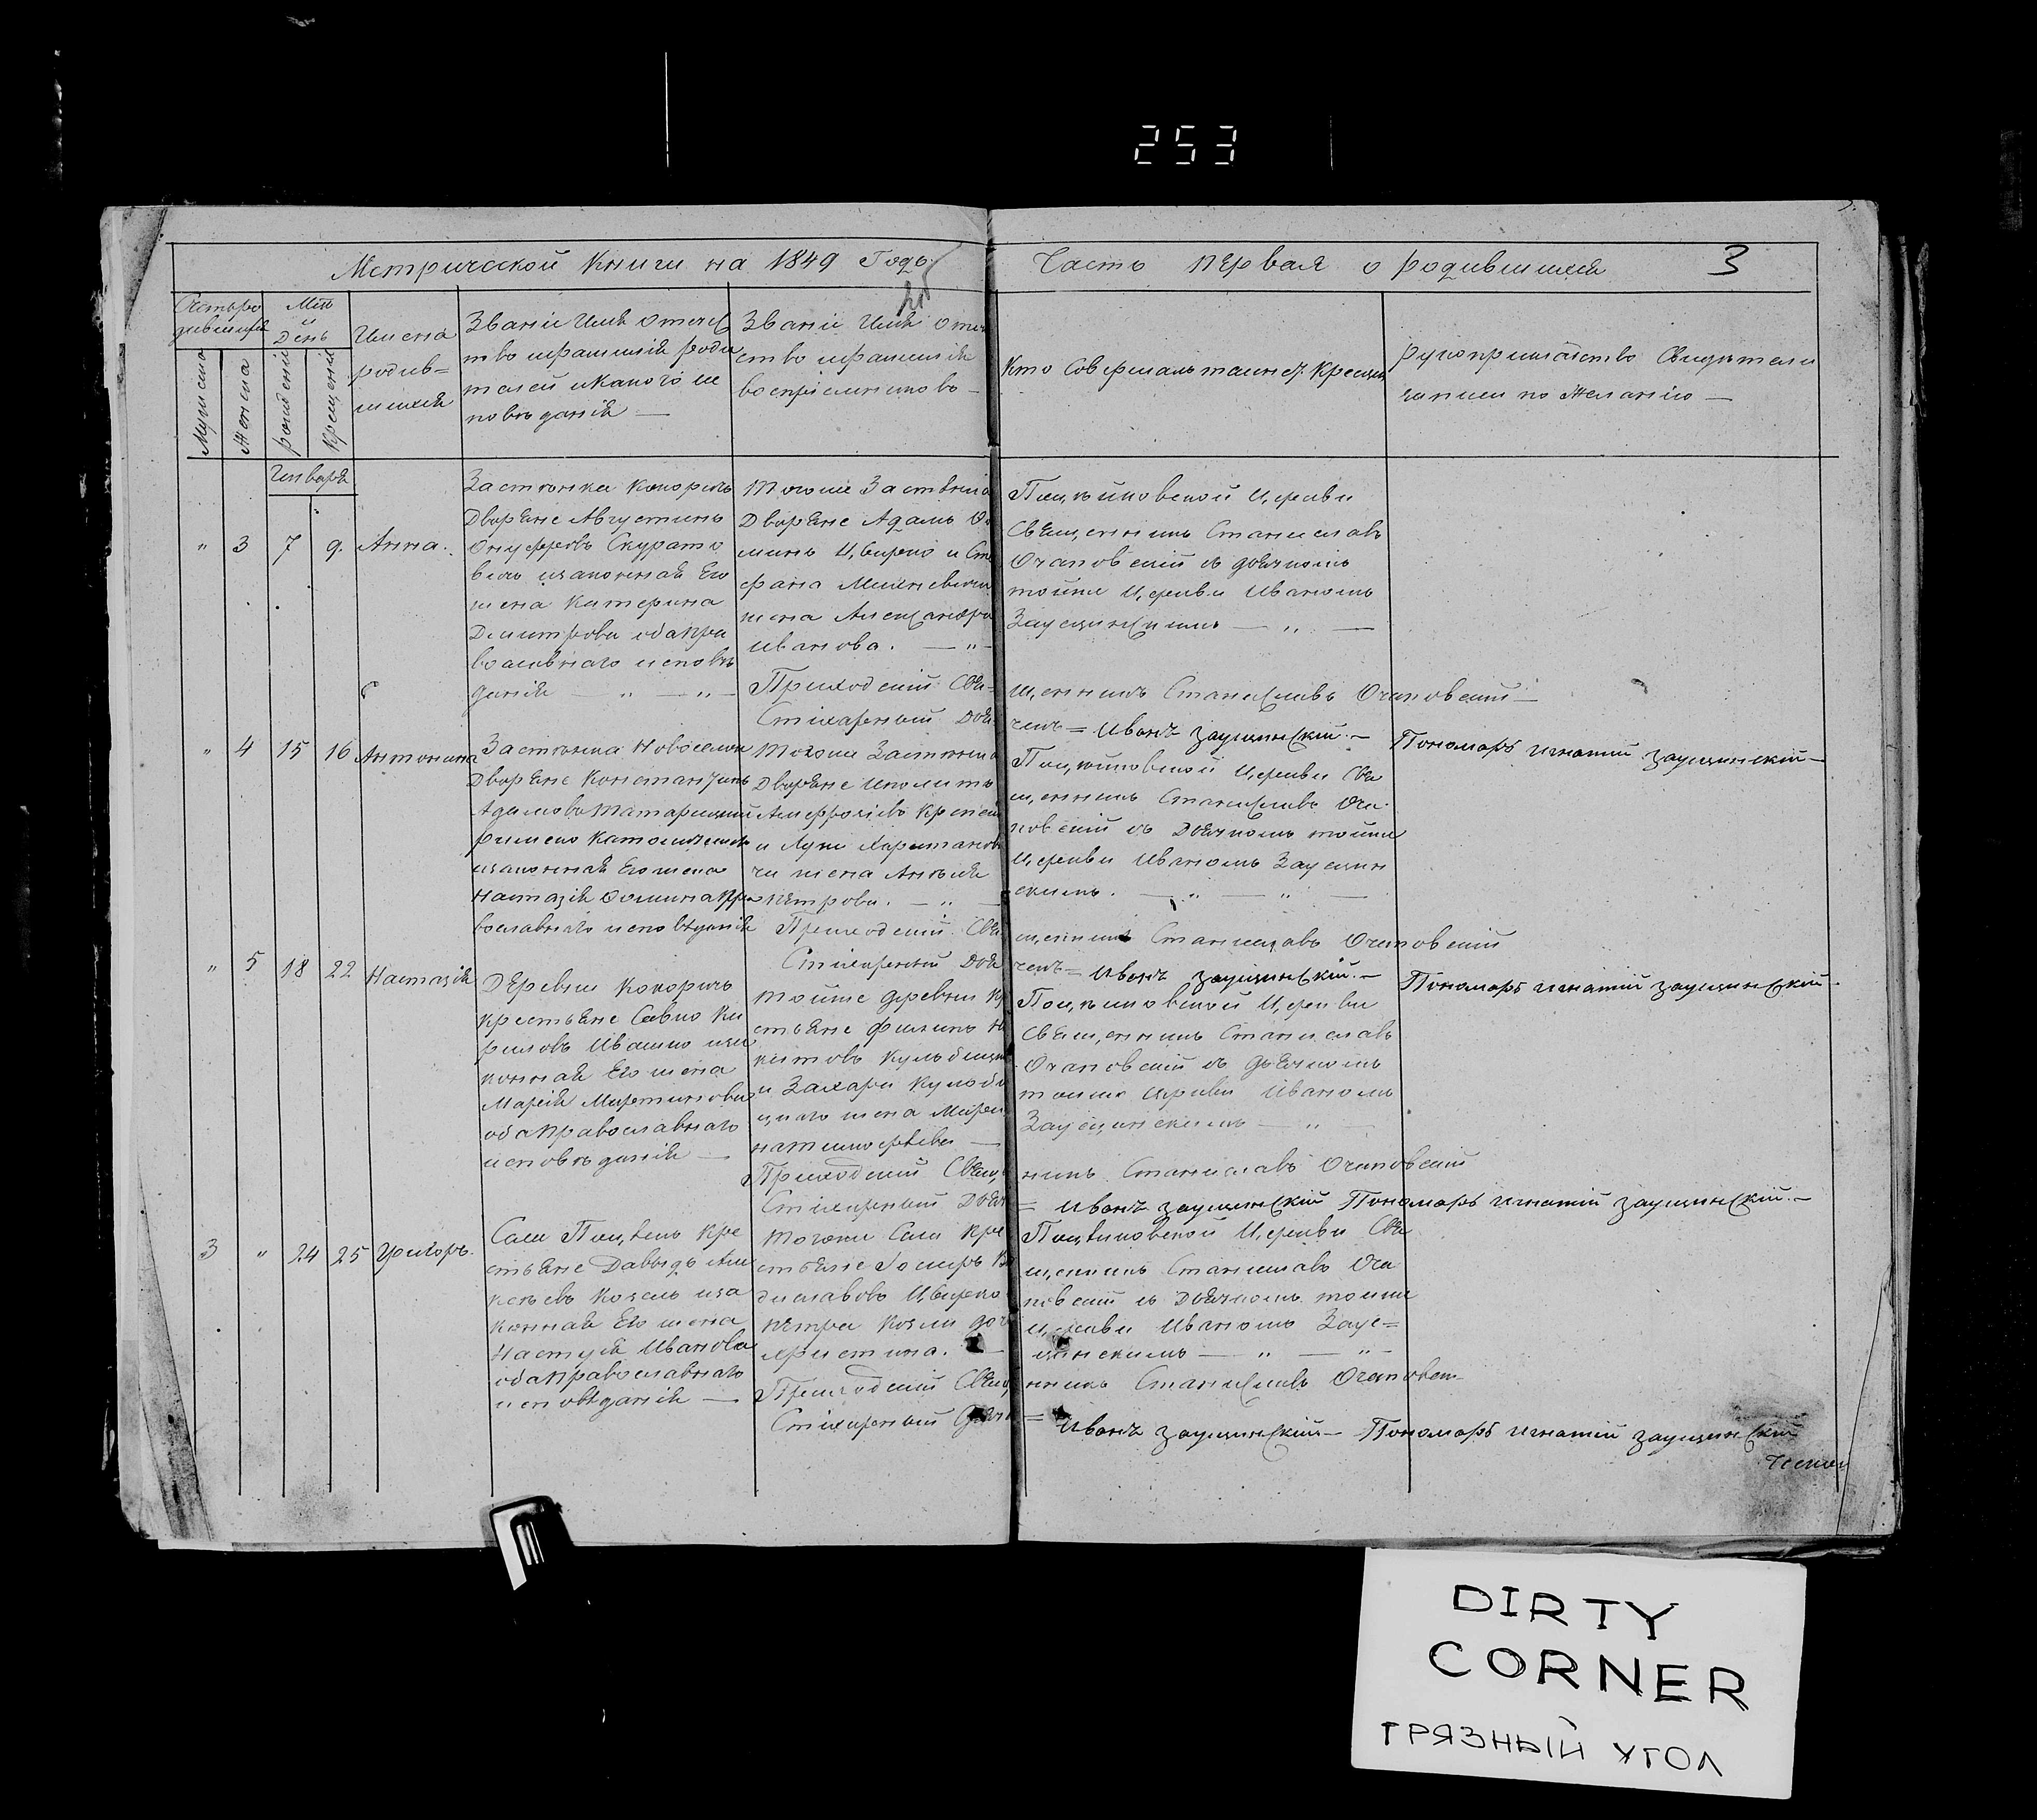 253
Метрической Книги на 1849 Годъ
Часть первая о родившихся 3
Мужеска
Женска
Мцъ
и
День
рожденія
крещенія
Имена
родив=
шихся
Званіе Имя отчес
тво ифамилія роди
телей икакого ис
повѣданія —
Званіе Имя отче
ство ифамилія
воспріемниковъ —
Кто Совершалъ таинст. Крещен
рукоприкладство Свидѣтелей
записи по Желанію —
Генваря
" 3 7 9. Анна.
Застѣнка Конорич
Дворяне Августинъ
Онуфріевъ Скурато
вичъ изаконная Его
жена Катерина
Димитрова оба пра
вославнаго исповѣ
данія — " — " —
Тогоже Застѣнка
Дворяне Адамъ
Цвирко и Сте
фана
жена Александра
Иванова. — " —
Приходскій Свя=
Стихарный Дья
Поцѣйковской Церкви
Священникъ Станиславъ
Очаповскій съ дьячкомъ
тойже Церкви Иваномъ
Заусцинскимъ — " —
щенникъ Станиславъ Очаповскій —
чекъ = Иванъ Заусцинскій. — Пономарь Игнатій Заусцинскій —
" 4 15 16 Антонина
Застѣнка Новоселки
Дворяне Константинъ
Адамовъ Татарицкій
римско Католическ
изаконная Его жена
Настазія Фомина пра
вославнаго исповѣданія
Тогоже Застѣнка
Дворяне Иполитъ
и Луки Харитонов
ча жена Анеля
Петрова. — " —
Приходскій Свя
Стихарный Дья
Поцѣйковской Церкви Свя
щенникъ Станиславъ Оча
повскій съ Дьячкомъ тойже
Церкви Иваномъ Заусцин
скимъ. — " — " —
щенникъ Станиславъ Очаповскій
чекъ = Иванъ Заусцинскій. — Пономарь Игнатій Заусцинскій —
" 5 18 22 Настазія
Деревни Конорич
крестьяне Савко Ки
риловъ Ивашко иза
конная Его жена
Марія Мартинова
оба православнаго
исповѣданія —
Тойже деревни Кр
стьяне Филипъ Н
китовъ Кульбицк
и Захари Кульби
цкаго жена Марія
Приходскій Свящ
Стихарный Дьяч
Поцѣйковской Церкви
Священникъ Станиславъ
Очаповскій съ дьячкомъ
тойже Церкви Иваномъ
Заусцинскимъ — " —
никъ Станиславъ Очаповскій
= Иванъ Заусцинскій Пономарь Игнатій Заусцинскій. —
3 " 24 25 Григоръ.
Села Поцѣекъ Кре
стьяне Давыдъ Али
ксѣевъ Козелъ иза
конная Его жена
Настуля Иванова
оба православнаго
исповѣданія —
Тогоже Села Кре
стьяне Іосифъ В
диславовъ Цвирко
Петра Козла доч
Христина. —
Приходскій Свящ
Стихарный Дьяч
Поцѣйковской Церкви Свя
щенникъ Станиславъ Оча
повскій съ Дьячкомъ тойже
Церкви Иваномъ Заус=
цинскимъ — " — " —
нникъ Станиславъ Очаповск
= Иванъ Заусцинскій — Пономарь Игнатій Заусцинскій
DIRTY
CORNER
ГРЯЗНЫЙ УГОЛ